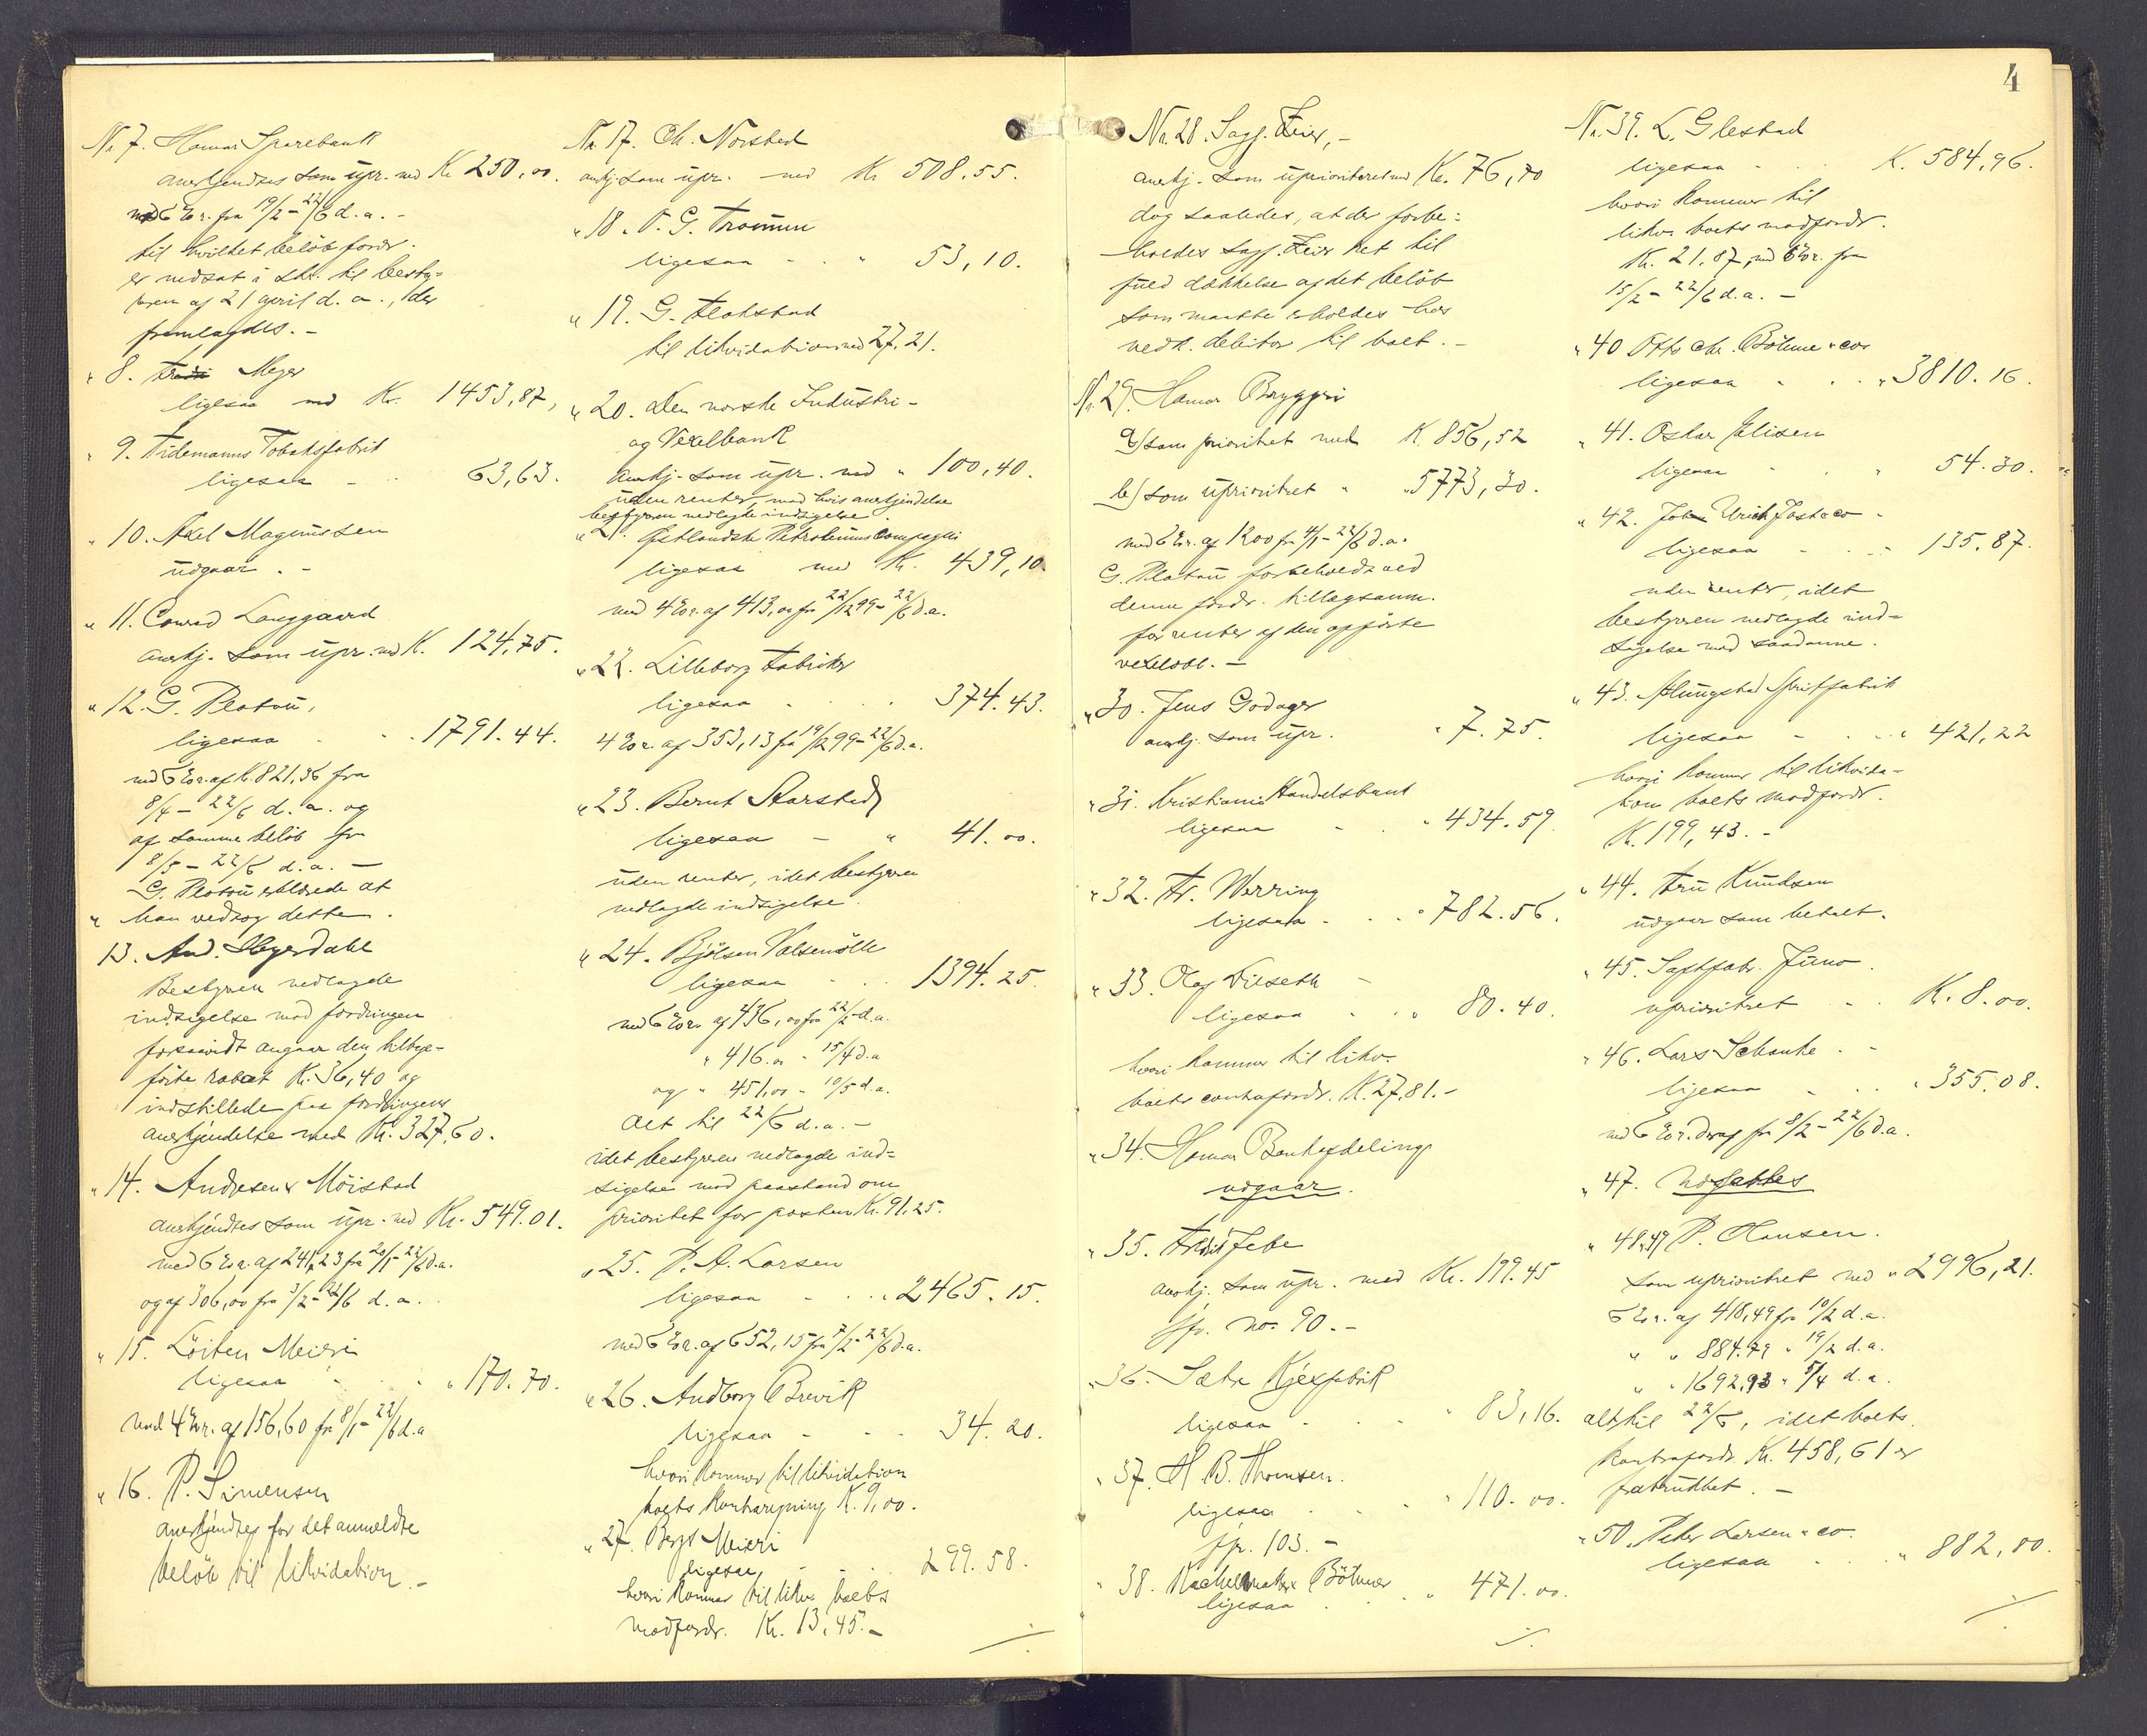 4
Nr 7. Hamar Sparebank
anerkjendtes som upr. med Kr 250,00.
med 6 % r. fra 19/2 - 22/6 d. a. -
til hvilket beløb fordr.
er nedsat i skr. til besty-
reren af 21 april d. a., der
fremlagdes. -
" 8. Meyer
ligesaa med Kr. 1453,87,
" 9. Tidemanns Tobaksfabrik
ligesaa - " 63,63.
" 10. Axel Magnussen
udgaar. -
" 11. Conrad Langgaard
anerkj. som upr. med K. 124,75.
" 12. G. Platou,
ligesaa " 1791.44.
med 6 % r. af K. 821,36 fra
8/4 - 22/6 d. a. og
af samme beløb fra
8/5 - 22/6 d. a. -
G. Platou erklærede at
" han vedtog dette.
13. And. Heyerdahl
Bestyreren nedlagde
indsigelse mod fordringen
forsaavidt angaar den tilbage-
førte rabat K. 36,40 og
indstillede paa fordringens
anerkjendelse med Kr. 327,60.
" 14. Andresen & Möistad
anerkjendtes som upr. med Kr. 549.01.
med 6 % r. af 241,23 fra 20/1 - 22/6 d.a.
og af 306,00 fra 3/2 - 22/6 d. a.
" 15. Löiten Meieri
ligesaa " 170.70.
med 4 % r. af 156,60 fra 8/1 - 22/6 d.a
" 16. P. Simensen
anerkjendtes for det anmeldte
beløb til likvidation. -
Nr. 17. Ch. Norsted
anerkj. som upr. med Kr 508.55.
" 18. G. Tromm
ligesaa - " 53,10.
" 19. G.
til likvidation med 27.21.
" 20. Den norske Industri-
og Vexelbank
anerkj. som upr. med " 100,40.
uden renter, mod hvis anerkjendelse
bestyreren nedlagde indsigelse.
" 21. Østlandske Petroleums Compagni
ligesaa med Kr. 439,10.
med 4 % r. af 413,00 fra 22/12 99 - 22/6 d.a.
" 22. Lilleborg Fabriker
ligesaa " 374.43.
4 % r. af 353,13 fra 19/12 99 - 22/6 d.a.
" 23. Bernt Starstad
ligesaa - " 41.00.
uden renter, idet bestyreren
nedlagde indsigelse.
" 24. Bjölsen Valsemölle
ligesaa " 1394.25.
med 6 % r. af 436,00 fra 22/2 d.a.
" 416.00 " 15/4 d.a
og " 451,00 " 10/5 d.a.
Alt til 22/6 d.a. -
idet bestyreren nedlagde ind-
sigelse mod paastand om
prioritet for posten Kr. 91.25.
" 25. P. A. Larsen
ligesaa " 2465.15.
med 6 % r. af 652,15 fra 7/2 - 22/6 d.a.
" 26. Andborg Brevik
ligesaa - 34.20.
hvori kommer til likvidation
boets kontraregning K. 9,00.
" 27. Meieri
ligesaa, - 299.58.
hvori kommer til likv. boets
modfordr. Kr. 13,45. -
Nr. 28. Sagf. Feier, -
anerkj. som uprioriteret med Kr. 76,70
dog saaledes, at der forbe-
holdes sagf. Feier ret til
fuld dækkelse af det beløb
som maatte erholdes hos
vedk. debitor til boet. -
Nr. 29. Hamar Bryggeri
a) som prioritet med K. 856,52
b) som uprioritret " " 5773,30.
med 6 % r. af 1200 fra 4/1 - 22/6 d.a.
G. Platou forbeholdt ved
denne fordr. tillægsanm.
for renter af den opförte
vexelobl. -
" 30. Jens Godager
anerkj. som upr. " 7.75.
" 31. Kristiania Handelsbank
ligesaa " 434.59
" 32. Fr. Werring
ligesaa " 782.56.
" 33. Olaf Vieseth
ligesaa " 80.40.
hvori kommer til likv.
boets contrafordr. K. 27,81. -
" 34. Hamar Bankafdeling
udgaar.
" 35. Fredrik Jebe
anerkj. som upr. med Kr. 199.45
jfr. no. 90. -
" 36. Sætre Kjexfabrik
ligesaa " 83,16.
" 37. H. B. Thomsen.
ligesaa " 110.00.
jfr. 103. -
" 38. Kachelmaker Böhmer
ligesaa " 471.00.
Nr. 39. L. Glestad
ligesaa - K. 584,96.
hvori kommer til
likv. boets modfordr.
Kr. 21.87 med 6 % r. fra
15/2 - 22/6 d.a. -
" 40 Otto Chr. Böhme & co
ligesaa " 3810.16.
" 41. Oskar Elisen
ligesaa " 54.30.
" 42. Ulrich Jost & co -
ligesaa " 135.87.
uden renter, idet
bestyreren nedlagde ind-
sigelse mod saadanne.
" 43. Spritfabrik
ligesaa " 421,22
hvori kommer til likvida-
tion boets modfordr.
Kr. 199,43. -
" 44. Fru Knudsen
udgaar som betalt.
" 45. Saftfabr. Juno
uprioritret " K. 8.00.
" 46. Lars Schanke -
ligesaa " 355.08.
med 6 % r. deraf fra 8/2 - 22/6 d.a.
" 47. Udsættes
" 48 & 49 P. Hansen.
som uprioritret med " 2996,21.
6 % r. af 418,49 fra 10/2 d.a.
" " 884.79 " 19/2 d.a.
" " 1692,93 " 5/4 d.a.
alt til 22/6, idet boets
kontrafordr. Kr. 458,61 er
fratrukket. -
" 50. Peter Larsen & co.
ligesaa " 882,80.